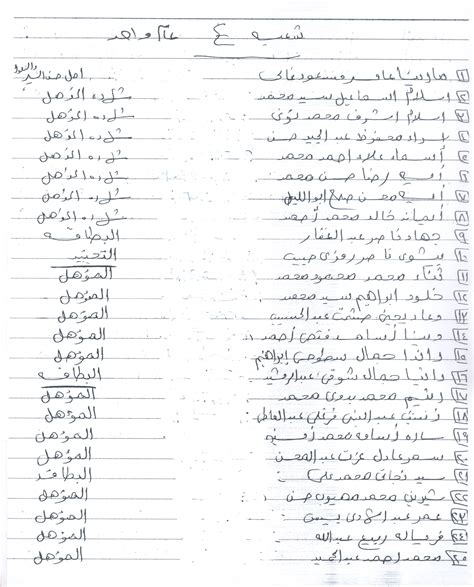 شعبه ع عام واحد
١ مارينا عامر مسعود غالى
٢ اسلام اسماعيل سيد محمد شهاده المؤهل
٣ اسلام اشرف محمد شهاده المؤهل
٤ اسراء محفوظ عبد المجيد حسن شهاده المؤهل
٥ أسماء علاء احمد محمد شهاده المؤهل
٦ رضا حسن محمد شهاده المؤهل
٧ محسن صلاح ابو الليل شهاده المؤهل
٨ خالد محمد أحمد شهاده المؤهل
٩ جهاد ناصر عبد الغفار البطاقه
١٠ ناصر حبيب التجنيد
١١ ثناء محمد محمود محمد المؤهل
١٢ خلود ابراهيم سيد محمد المؤهل
١٣ يحيى المؤهل
١٤ دينا أسامه فتحى أحمد المؤهل
١٥ داليا جمال ابراهيم المؤهل
١٦ داليا جمال شوقى عبد الرشيد البطاقه
١٧ محمد بدوى محمد المؤهل
١٨ زينب عبد النبى فرغلى عبد العاطى المؤهل
١٩ ساره أسامه محمد المؤهل
٢٠ سمر عادل عزت عبد المحسن المؤهل
٢١ سيد محمد على البطاقه
٢٢ شيرين محمد حسن المؤهل
٢٣ عمر عبد الهادى المؤهل
٢٤ فرياله ربيع عبد الله المؤهل
٢٥ محمد احمد عبد الحميد المؤهل